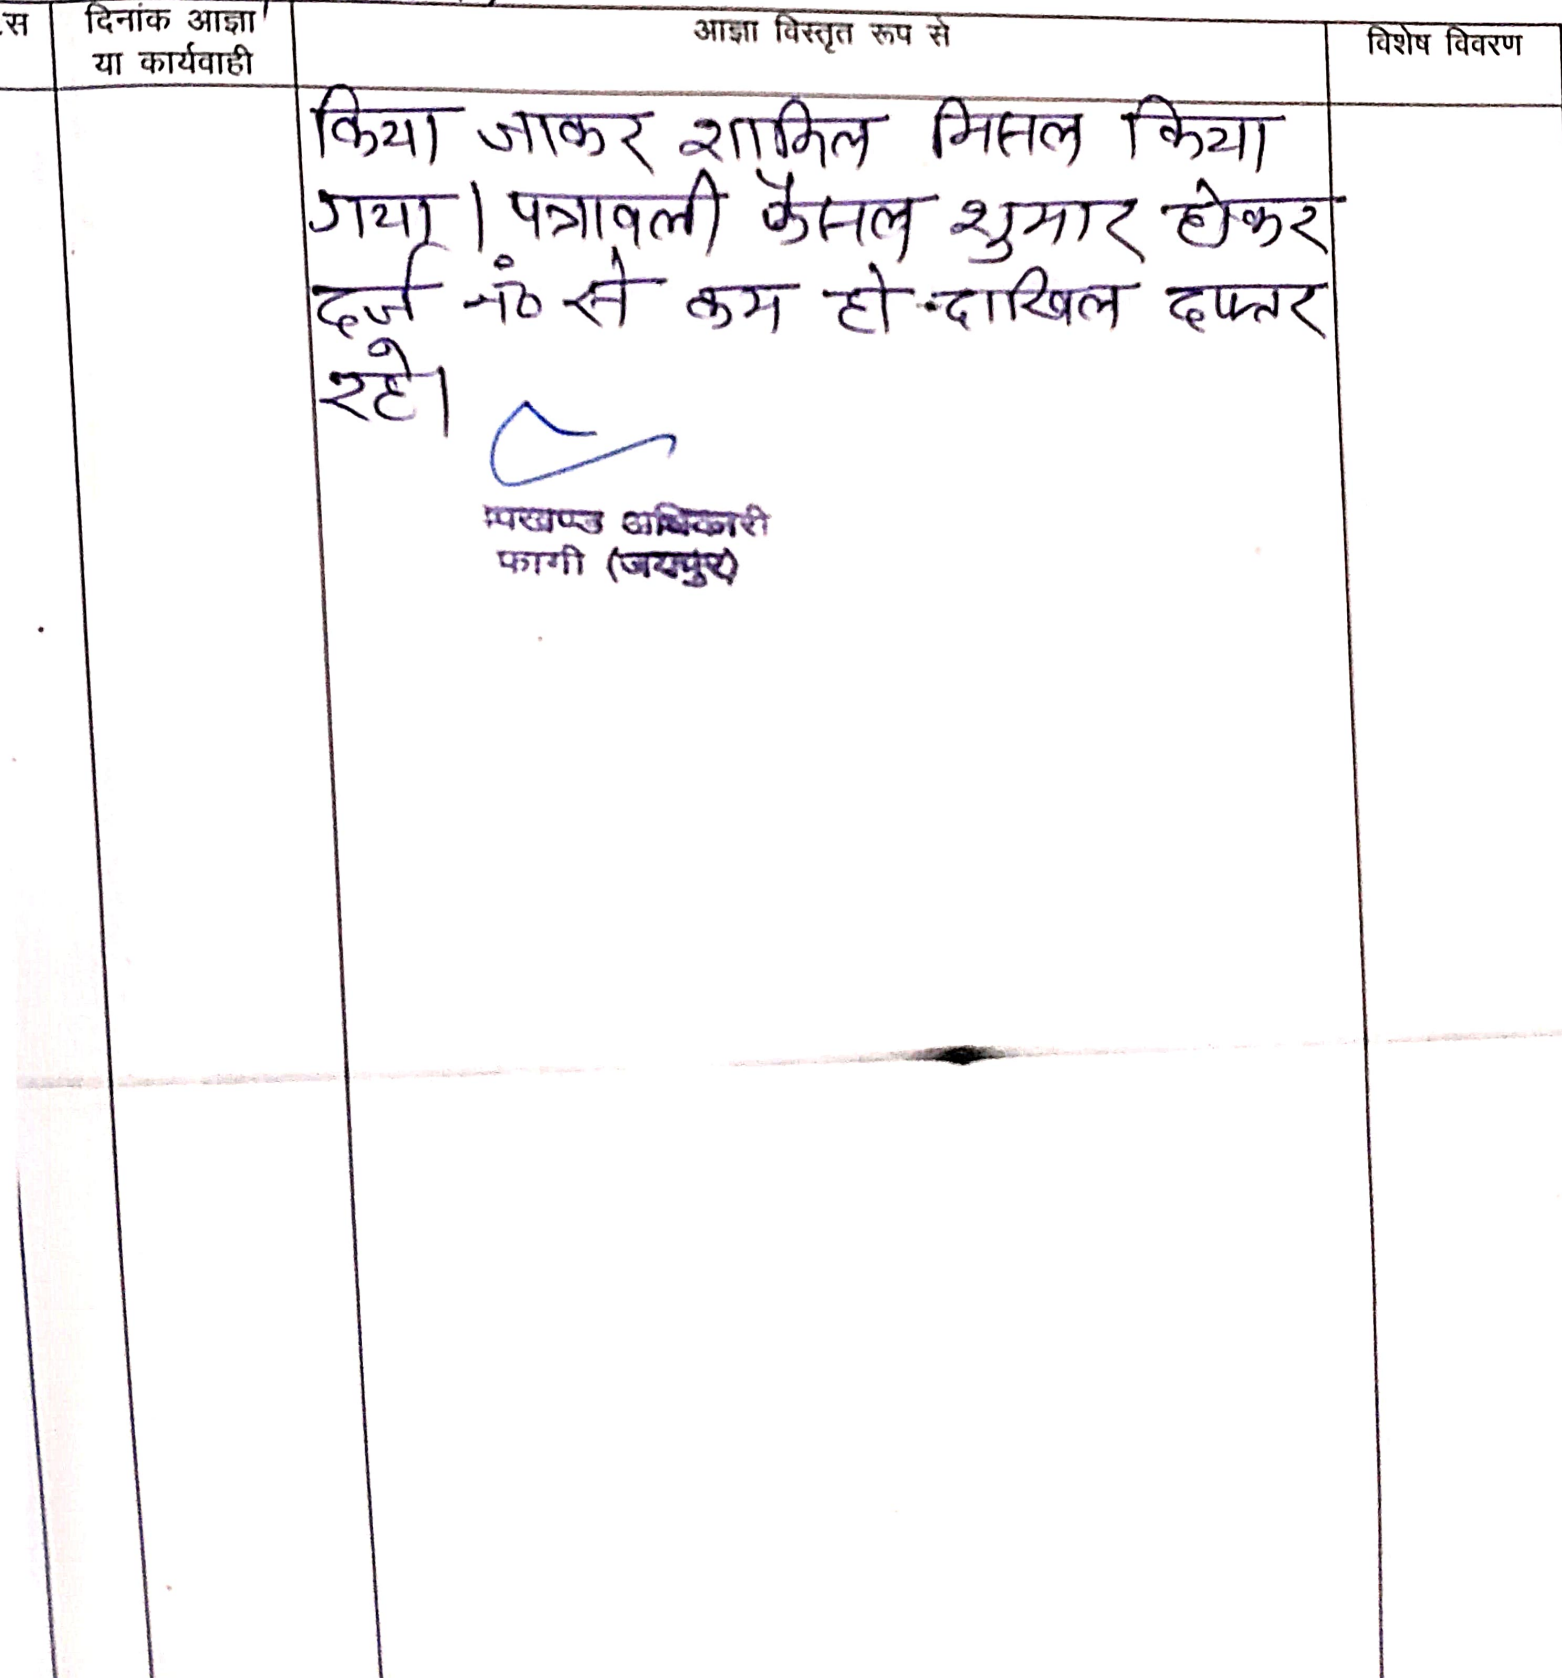 .स दिनांक आज्ञा आज्ञा विस्तृत रूप से विशेष विवरण
या कार्यवाही
किया जाकर शामिल मिसल किया
गया। पत्रावली फैसल शुमार होकर
दर्ज नं० से कम हो दाखिल दफ्तर
रहे।
उपखण्ड अधिकारी
फागी (जयपुर)